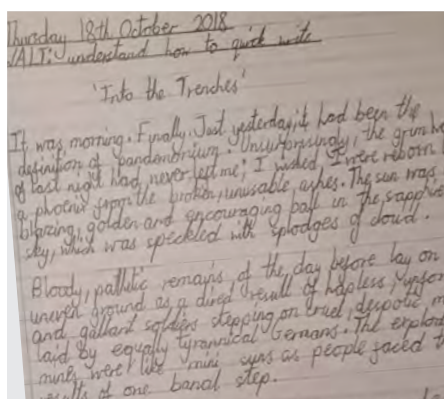 Thursday 18th October 2018
WALT: understand how to quick write
'Into the Trenches'
It was morning. Finally. Just yesterday, it had been the
definition of pandemonium. Unsurprisingly, the grim
of last night had never left me; I wished I were reborn
a phoenix from the broken, unusable, ashes. The sun was
blazing, golden and encouraging ball in the sapphire
sky, which was speckled with splodges of cloud.
Bloody, pathetic remains of the day before lay on
uneven ground as a direct result of hapless,
and gallant soldiers stepping on cruel, despotic
laid by equally tyrannical Germans. The
mines were like mini suns as people faced
results of one banal step.